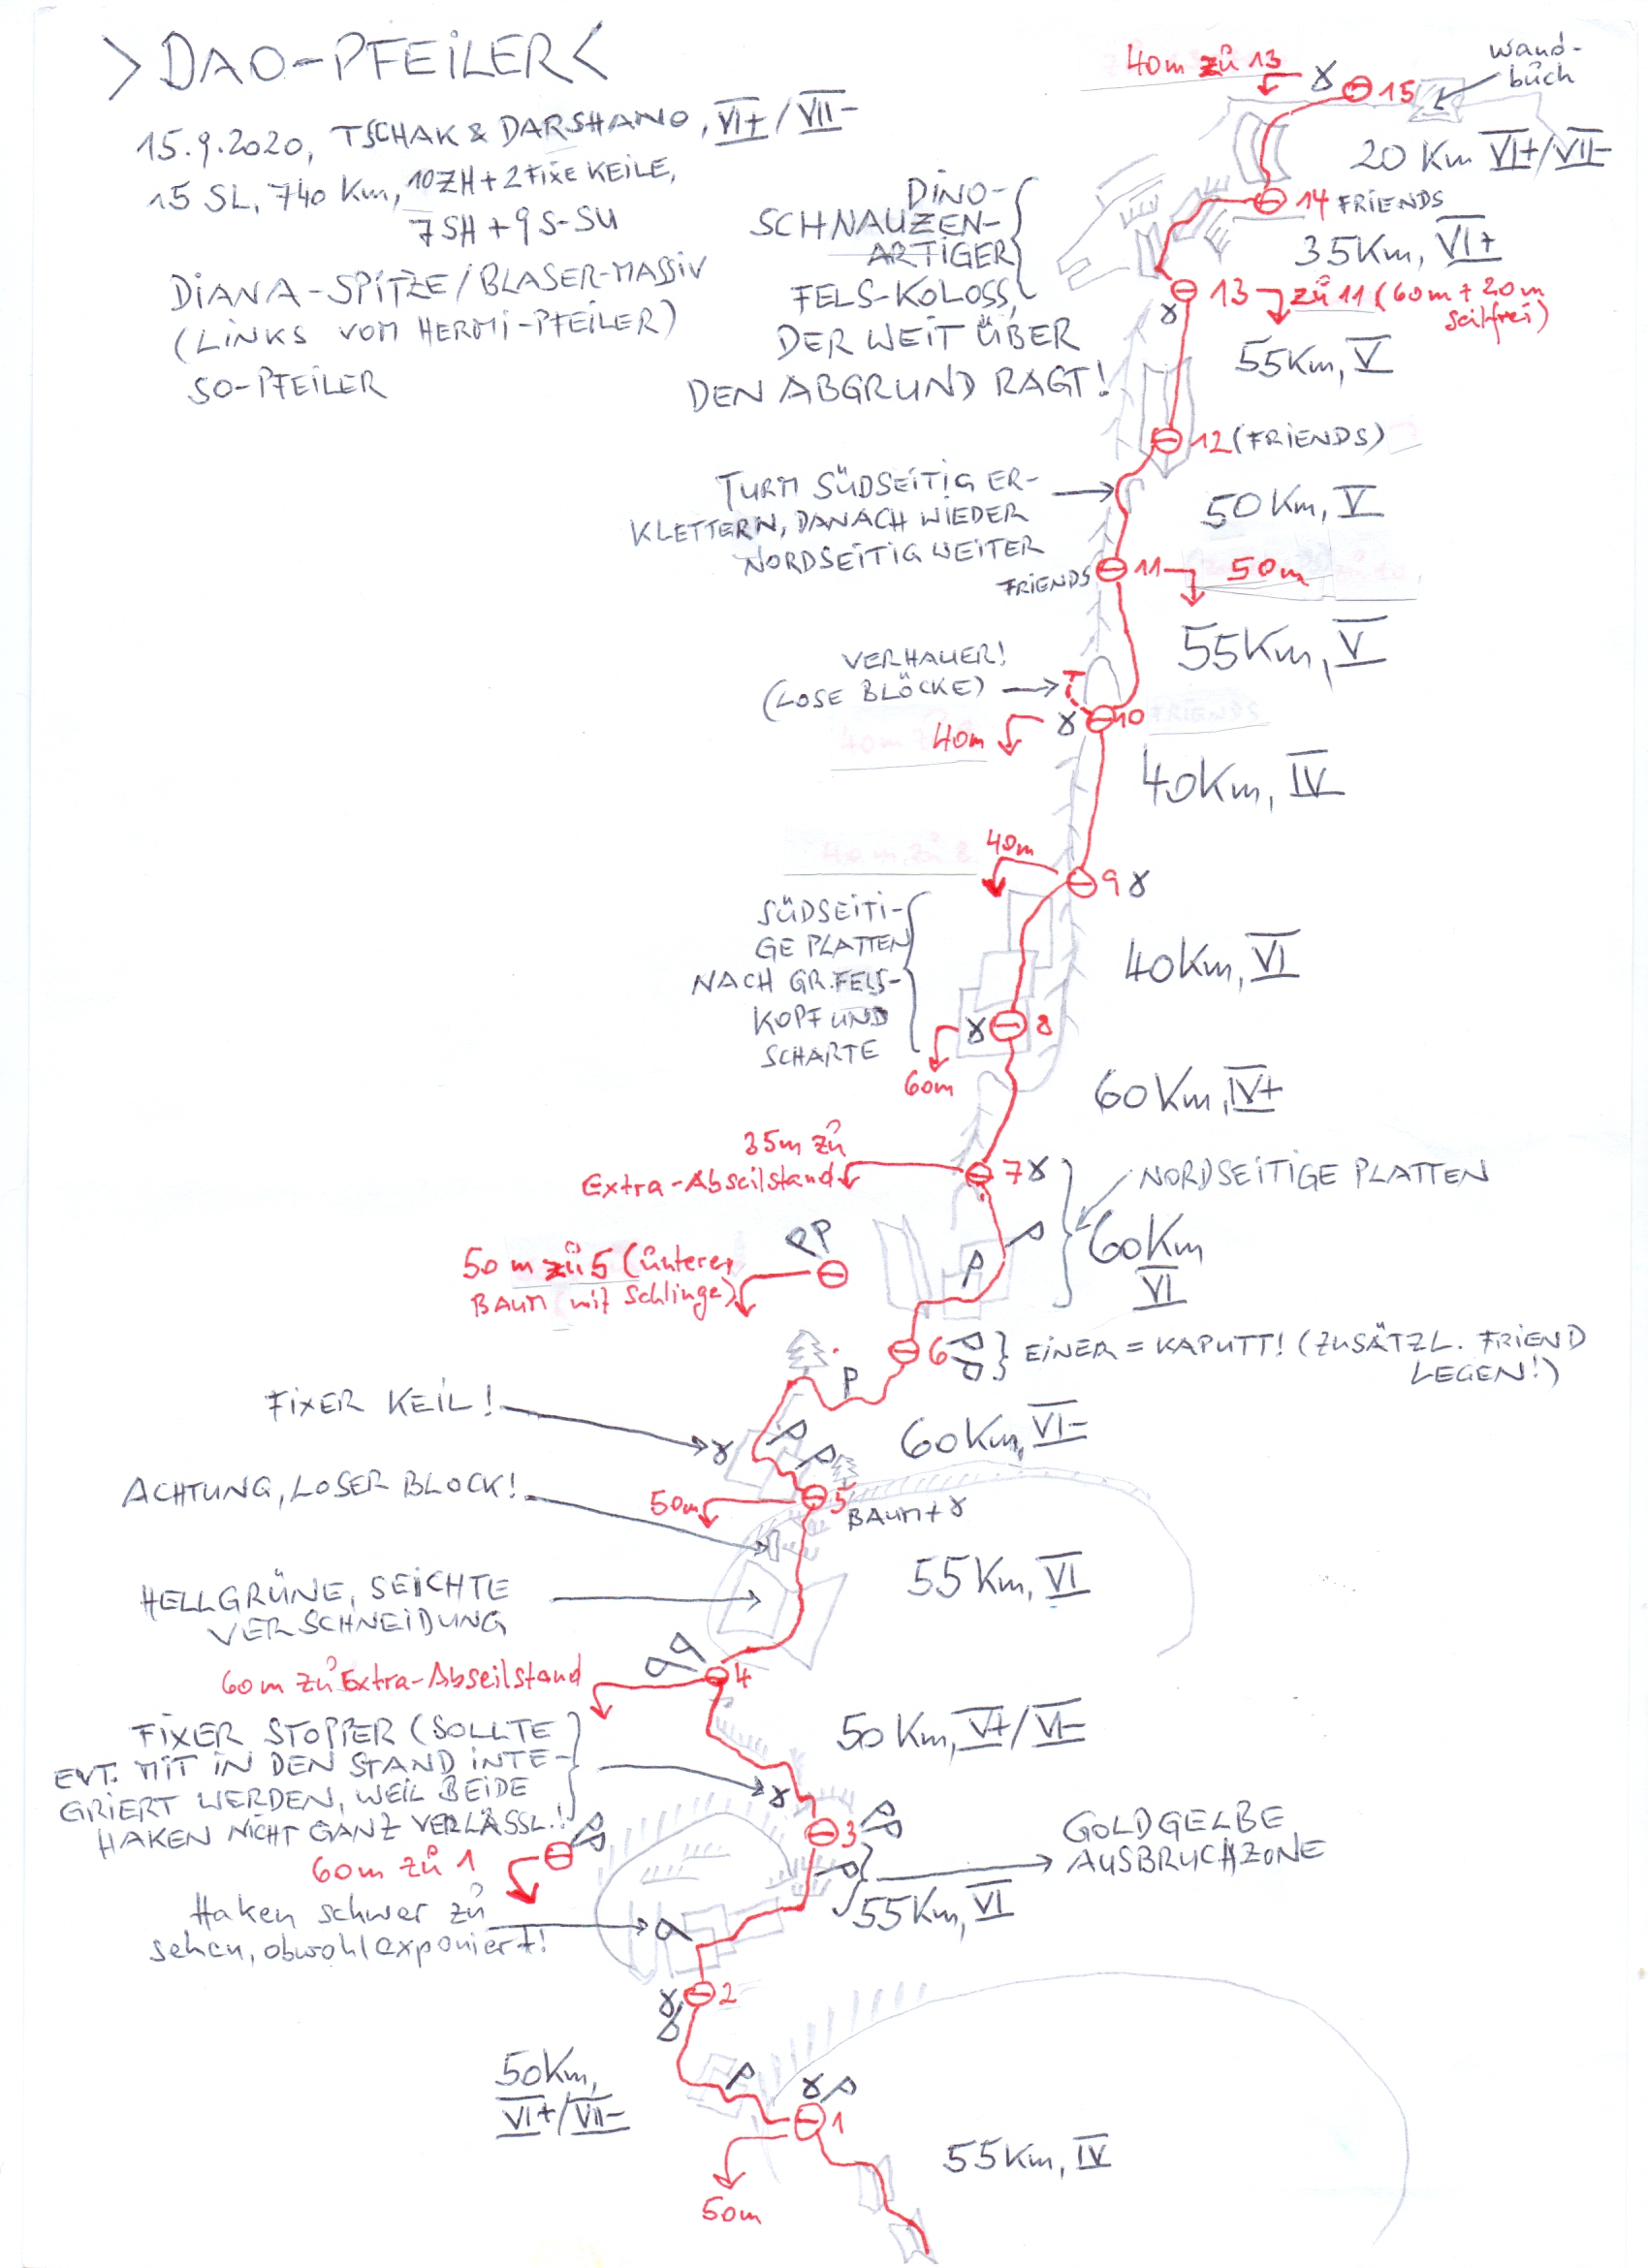 >DAO-PFEILER<
15.9.2020, TSCHAK & DARSHANO, VI+/VII-
15 SL, 740 Km, 10ZH+2 FIXE KEILE,
7SH+9 S-SU
DIANA-SPITZE/BLASER-MASSIV
(LINKS VOM HERMI-PFEILER)
SO-PFEILER
40m zu 13
15
wand-
buch
20 Km VI+/VII-
14 FRIENDS
35Km, VI+
DINO-
SCHNAUZEN-
ARTIGER
FELS-KOLOSS,
DER WEIT ÜBER
DEN ABGRUND RAGT!
13 zu 11 (60m + 20m
seilfrei)
55Km, V
12 (FRIENDS)
TURM SÜDSEITIG ER-
KLETTERN, DANACH WIEDER
NORDSEITIG WEITER
50 Km, V
FRIENDS 11 50m
55Km, V
VERHAUER!
(LOSE BLÖCKE)
10
40m
40Km, IV
40m
9
SÜDSEITI-
GE PLATTEN
NACH GR. FELS-
KOPF UND
SCHARTE
40Km, VI
8
60m
60Km, IV+
35m zu
Extra-Abseilstand
7
NORDSEITIGE PLATTEN
60Km
VI
50 m zu 5 (unterer
BAUM (mit Schlinge)
6 } EINER = KAPUTT! (ZUSÄTZL. FRIEND
LEGEN!)
FIXER KEIL!
60Km, VI-
ACHTUNG, LOSER BLOCK!
50m
5
BAUM +
55Km, VI
HELLGRÜNE, SEICHTE
VERSCHNEIDUNG
4
60m zu Extra-Abseilstand
50 Km, V+/VI-
FIXER STOPPER (SOLLTE
EVT. MIT IN DEN STAND INTE-
GRIERT WERDEN, WEIL BEIDE
HAKEN NICHT GANZ VERLÄSSL.!)
3
GOLDGELBE
AUSBRUCHZONE
60m zu 1
55Km, VI
Haken schwer zu
sehen, obwohl exponiert!
2
50Km,
VI+/VII-
1
55Km, IV
50m